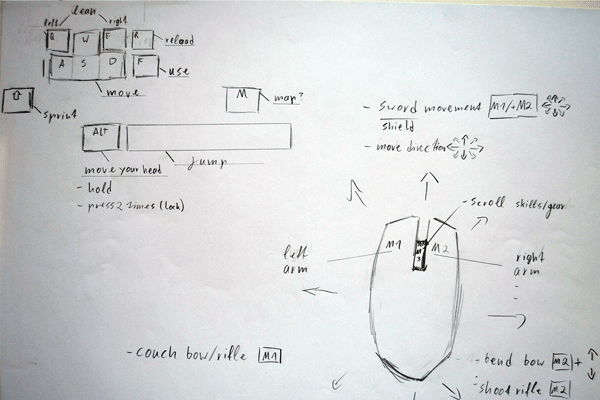 lean
left right
Q W E R reload
A S D F use
move
⇧ sprint
M map?
Alt
move your head
jump
- hold
- press 2 times (lock)
- sword movement M1/+M2
shield
- move direction
- scroll skills/gear
M1 M3 M2
left
arm
right
arm
- couch bow/rifle M1
- bend bow M2 +
- shoot rifle M2